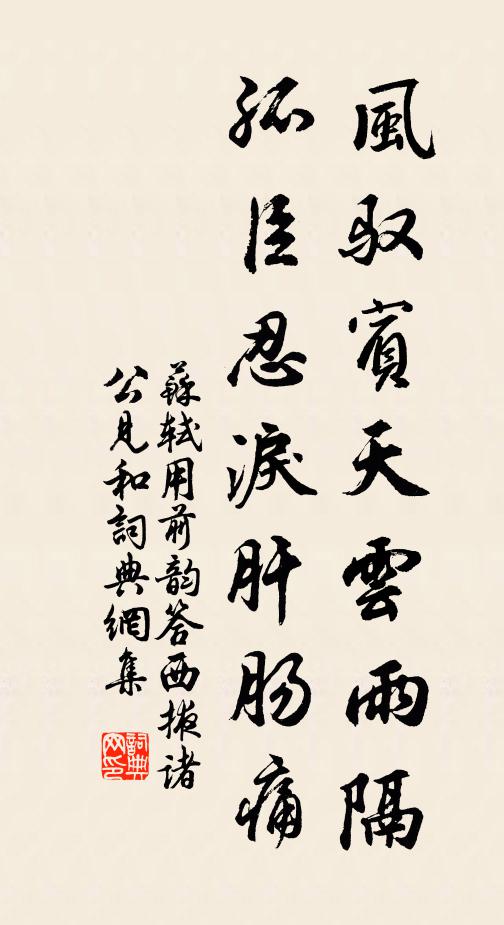 風馭賓天雲雨隔
孤臣忍淚肝腸痛
蘇軾用前韵答西掖諸
公見和詞典網集
詞典
网印